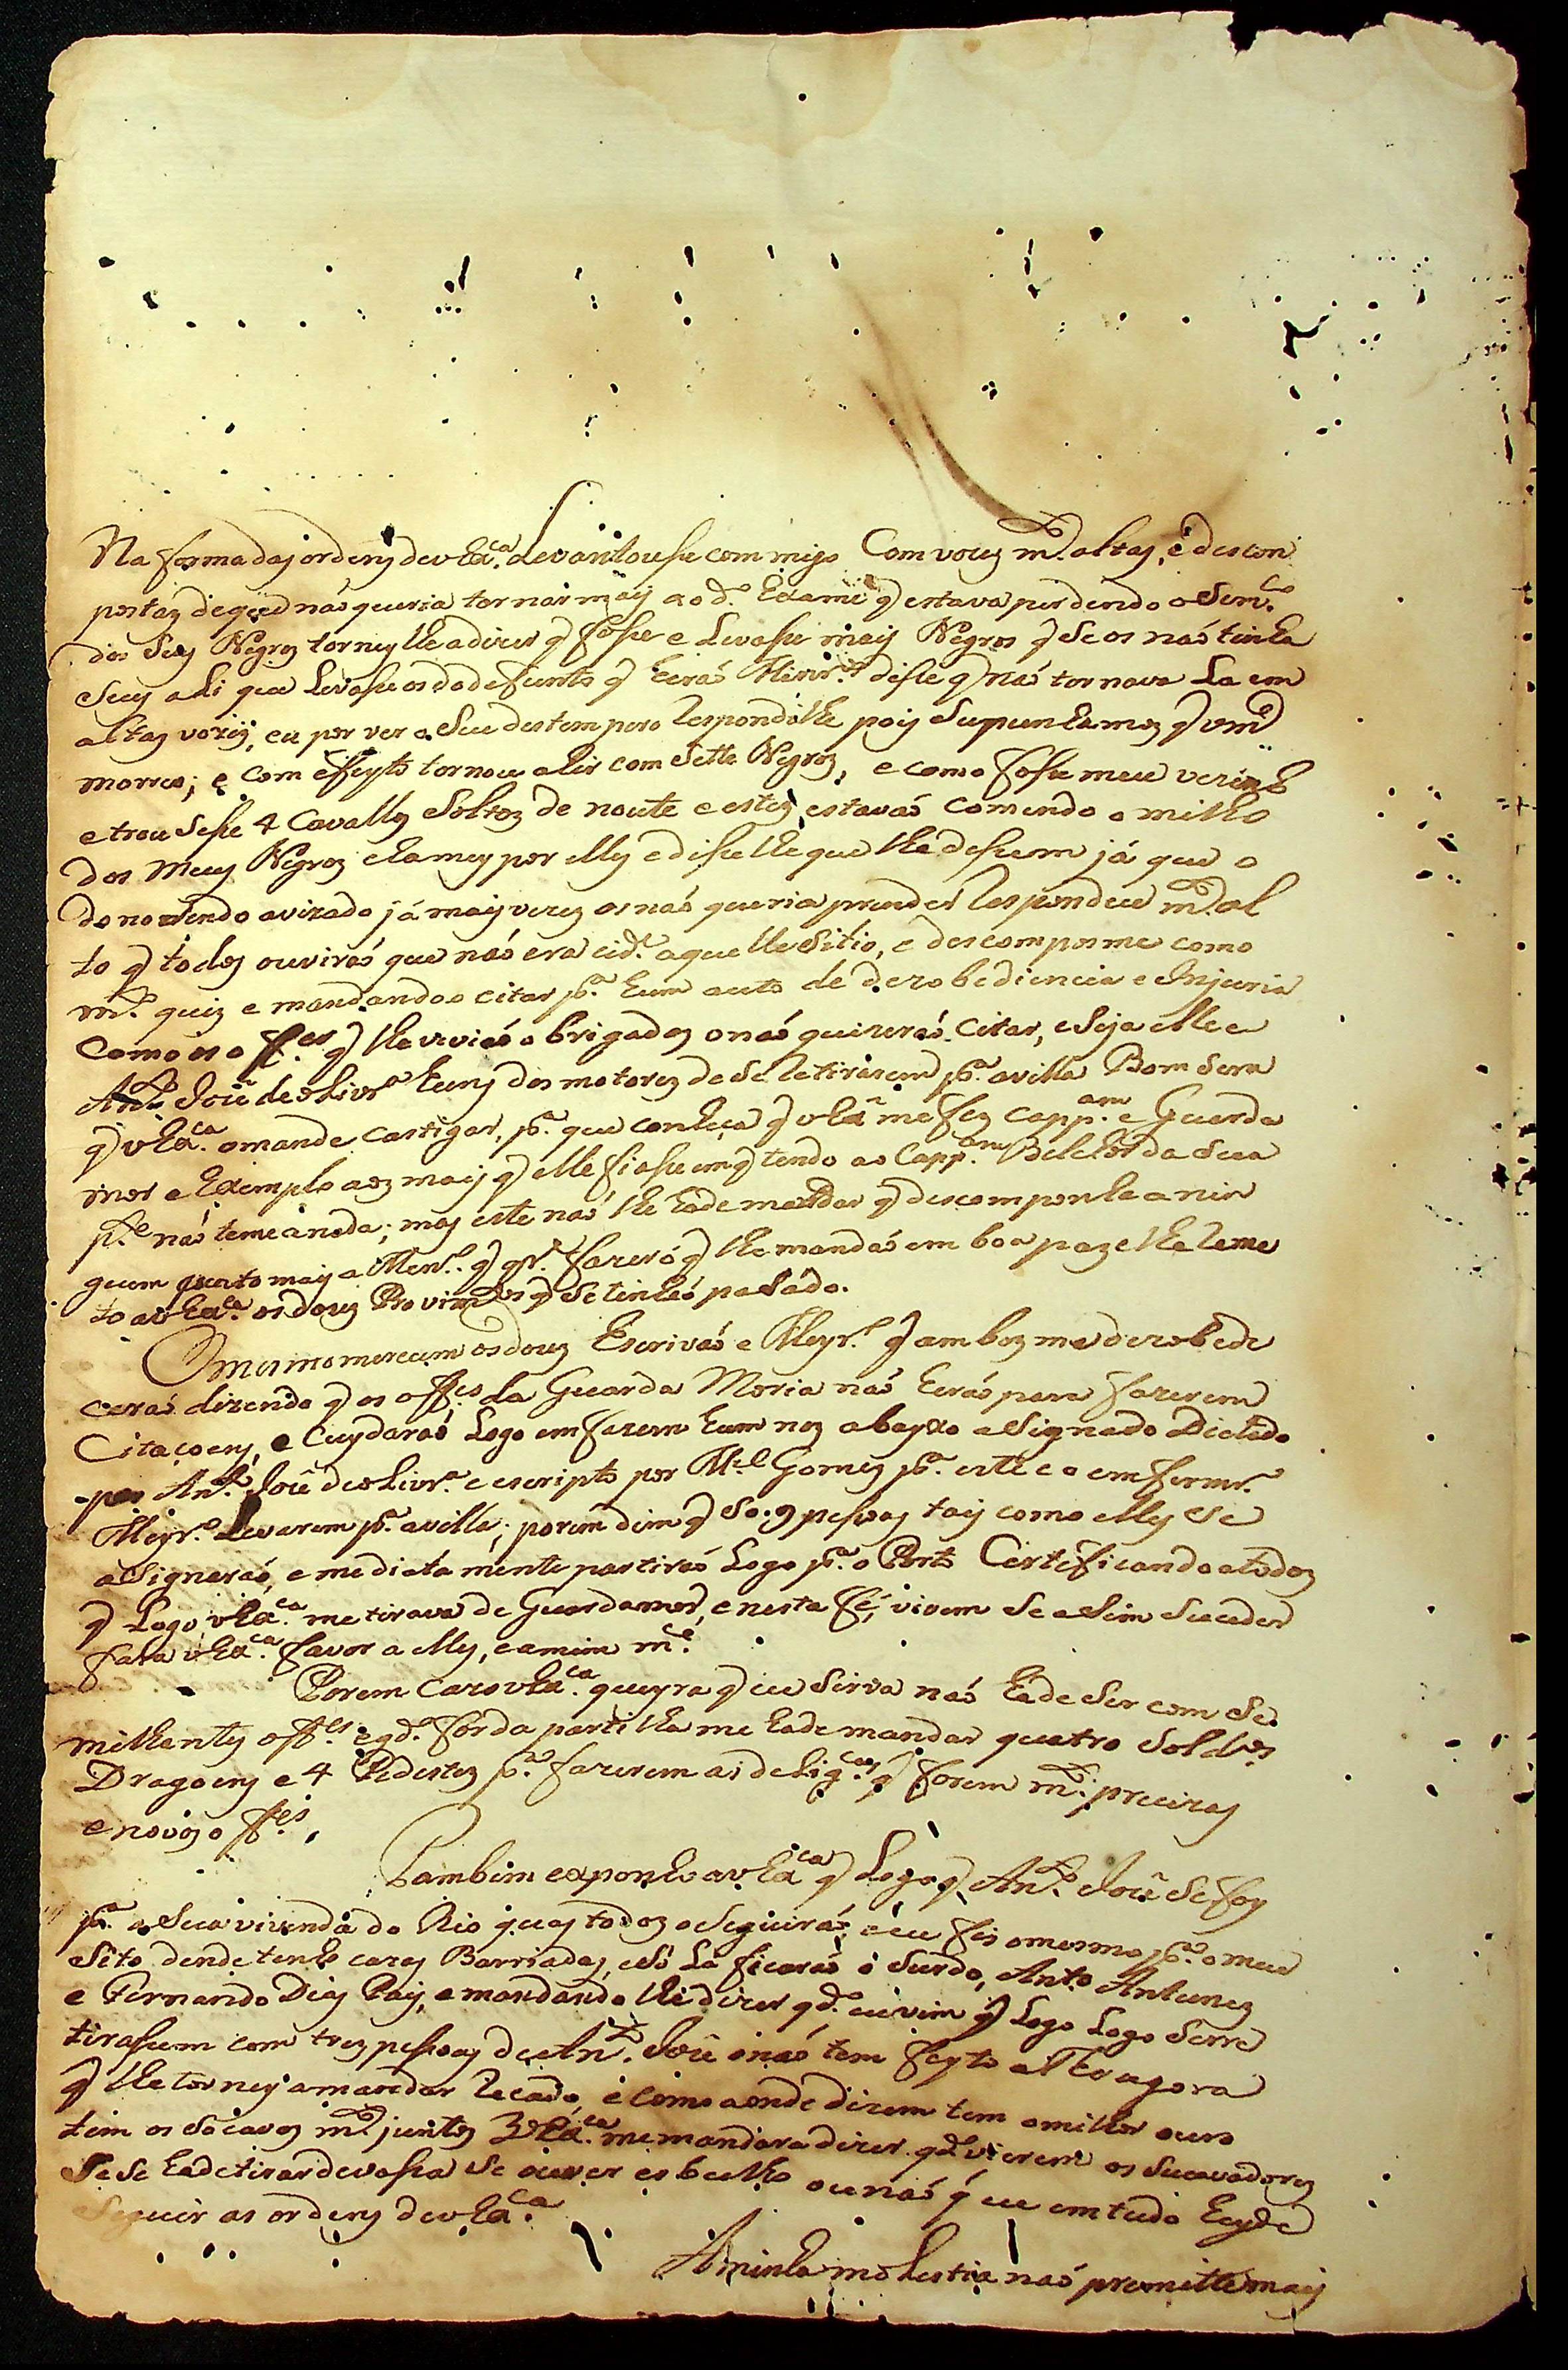 Na forma das ordens de v Exa. Levantousse com migo Com vozes mto. altas, e descon
postas de que não queria tornar mais ao do. Exame q estava perdendo o Servco.
dos Seus Negros torneylhe a dizer q fosse e Levasse mais Negros q Se os não tinha
Seus ali que Levasse os do defunto q heras disse q não tornava La em
altas vozes, eu por ver o Seu destempero Respondilhe pois Supunhamos q vm
morreo; e com effeyto tornou a hir com Sette Negros, e como fosse meu vezinho
e trouSesse 4 Cavallos Soltos de noute e estes estavão comendo o milho
dos Meus Negros chamey por elles e disselhe que lhe dessem já que o
dono Sendo avizado já mais vezes os não queria prender Respondeu mto. al
to q todos ouvirão que não era cide. aquelle Sitio, e descompos me como
mto. quiz e mandandoo citar pa. hum auto de dezobediencia e Injuria
Como os offes. q lhe vivião obrigados o não quizerão Citar, e Seja elle e
Anto. Joze de olivra. huns dos motores de Se Retirarem pa. a villa Bom Sera
q v Exa. o mande castigar, pa. que conheça q v Exa. me fez Cappam. e Guarda
mor e Exemplo aos mais q elle fiasse em q tendo ao Cappam. Belchior da Sua
pte. não teme a nada; mas este não lhe hade mandar q descomponha a nin
guem quanto mais a q qr. fazer o q lhe mandão em boa paz e lhe Reme
to a v Exa. os dous Provimtos. q Se tinhão paSado.
O mesmo merecem os dous Escrivão e Meyro. q ambos me dezobede
cerão dizendo q os offes. da Guarda Moria não herão para fazerem
Citaçoens, e Cuydarão Logo em fazerem hum nos abayxo aSignado Dictado
por Anto. Joze de olivra. e escripto por Mel. Gomes pa. este e o emfermro.
Meyro. Levarem pa. a villa; porem dizem q So. 9 pessoas tais como elles Se
aSignarão, e mediatamente partirão Logo pa. o Porto Certeficando a todos
q Logo v Exa. me tirava de Guardamor, e nesta fé, vivem Se aSim Suceder
fara v Exa. favor a elles, e a mim mce.
Porem Cazo v Exa. queyra q eu Sirva não hade Ser com Se
milhantes offes. e qdo. for da partilha me hade mandar quatro Soldos.
Dragoens e 4 Pedestes pa. fazerem as deligcas. q forem mto. precizas
e novos offes.
Tambem exponho a v Exa. q Logo q Anto. Joze Se foy
pa. a Sua vivenda do Rio quaze todos o Seguirão e eu fis o mesmo pa. o meu
Sitio donde tenho cazas Barriadas, e Só La ficarão o Surdo, Anto Antunes
e Fernando Dias Pais, e mandandolhe dizer qdo. eu vim q Logo Logo Serre
tirassem com tres pessoas de Anto. Joze o não tem feyto athe agora
q lhe torney a mandar Recado, e como aonde dizem tem o milhor ouro
tem os Socavos mto. juntos v Exa. me mandara dizer qdo. vierem os Sucavadores
Se Se hade tirar devassa Se ouver esbulho ou não q eu em tudo heyde
Seguir as ordens de v Exa.
A minha molestia não premitte mais